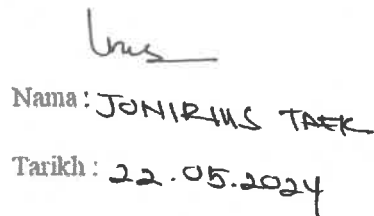 Nama : JONIRIUS TAEK
Tarikh : 22.05.2024